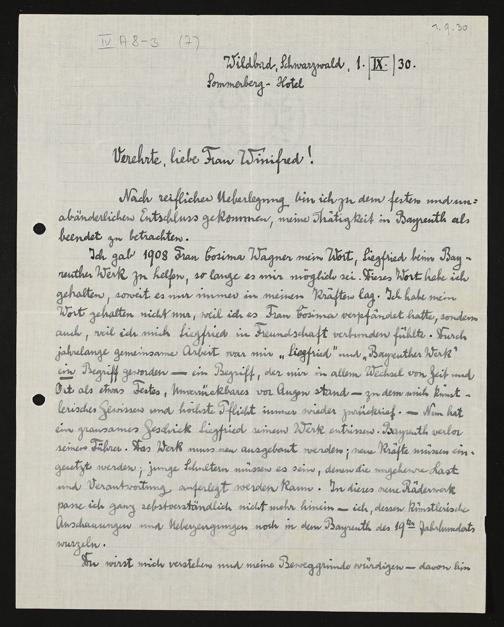 1.9.30
IV A 8-3 (7)
Wildbad, Schwarzwald, 1. |IX.| 30.
Sommerberg-Hotel
Verehrte, liebe Frau Winifred!
Nach reiflicher Ueberlegung bin ich zu dem festen und un=
abänderlichen Entschluss gekommen, meine Thätigkeit in Bayreuth als
beendet zu betrachten.
Ich gab 1908 Frau Cosima Wagner mein Wort, Siegfried beim Bay-
reuther Werk zu helfen, so lange es mir möglich sei. Dieses Wort habe ich
gehalten, soweit es nur immer in meinen Kräften lag. Ich habe mein
Wort gehalten nicht nur, weil ich es Frau Cosima verpfändet hatte, sondern
auch, weil ich mich Siegfried in Freundschaft verbunden fühlte. Durch
jahrelange gemeinsame Arbeit war mir „Siegfried" und „Bayreuther Werk"
ein Begriff geworden — ein Begriff, der mir in allem Wechsel von Zeit und
Ort als etwas Festes, Unverrückbares vor Augen stand — zu dem mich künst-
lerisches Gewissen und höchste Pflicht immer wieder zurückrief. — Nun hat
ein grausames Geschick Siegfried seinem Werk entrissen. Bayreuth verlor
seinen Führer. Das Werk muss neu ausgebaut werden; neue Kräfte müssen ein-
gesetzt werden; junge Schultern müssen es sein, denen die ungeheure Last
und Verantwortung auferlegt werden kann. In dieses neue Räderwerk
passe ich ganz selbstverständlich nicht mehr hinein — ich, dessen künstlerische
Anschauungen und Ueberzeugungen noch in dem Bayreuth des 19ten Jahrhunderts
wurzeln.
Du wirst mich verstehen und meine Beweggründe würdigen — davon bin